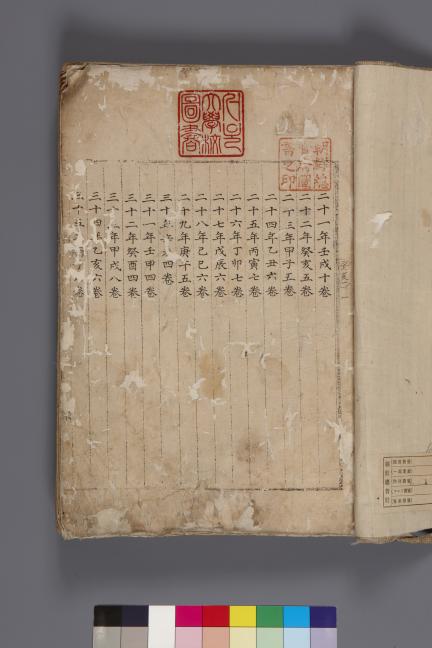 서울大學校圖書
朝鮮總督府圖書之印
二十一年壬戌十卷
二十二年癸亥五卷
二十三年甲子五卷
二十四年乙丑六卷
二十五年丙寅七卷
二十六年丁卯七卷
二十七年戊辰六卷
二十八年己巳六卷
二十九年庚午五卷
三十年四卷
三十一年壬申四卷
三十二年癸酉四卷
三十年甲戌八卷
三十四乙亥六卷
三十五卷